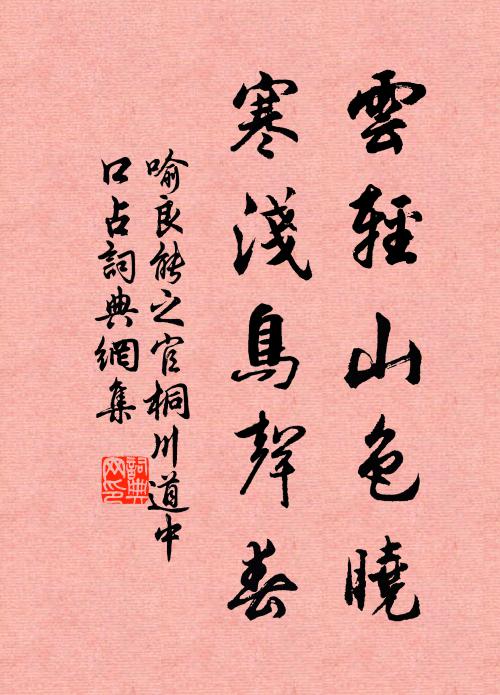 雲輕山色曉
寒淺鳥聲春
喻良能之官桐川道中
口占詞典網集
詞典
网印